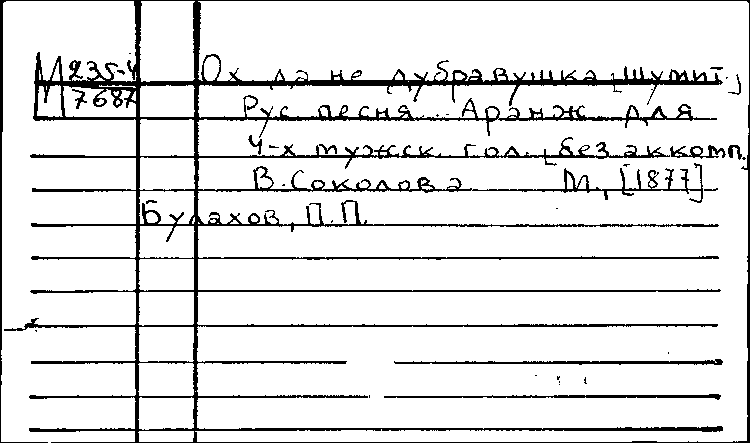 М 235-4
7687
Ох да не дубравушка [шумит.]
Рус песня. Аранж для
4-х мужск. гол. [без аккомп.]
В. Соколова М., [1877]
Булахов, П.П.